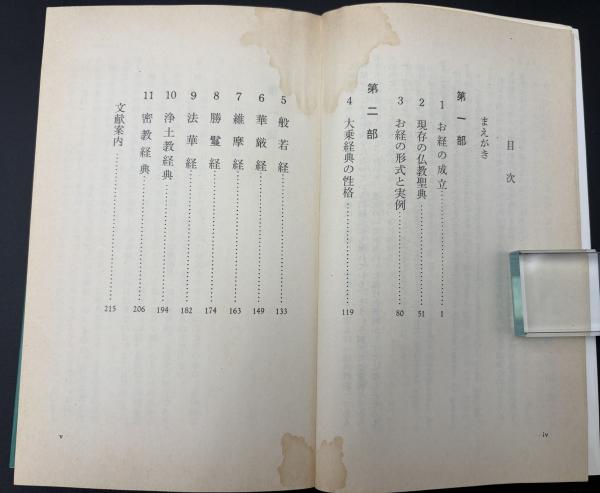 目次
まえがき
第一部
1 お経の成立……………………1
2 現存の仏教聖典……………………51
3 お経の形式と実例……………………80
第二部
4 大乗経典の性格……………………119
iv
5 般若経……………………133
6 華厳経……………………149
7 維摩経……………………163
8 勝鬘経……………………174
9 法華経……………………182
10 浄土教経典……………………194
11 密教経典……………………206
文献案内……………………215
v